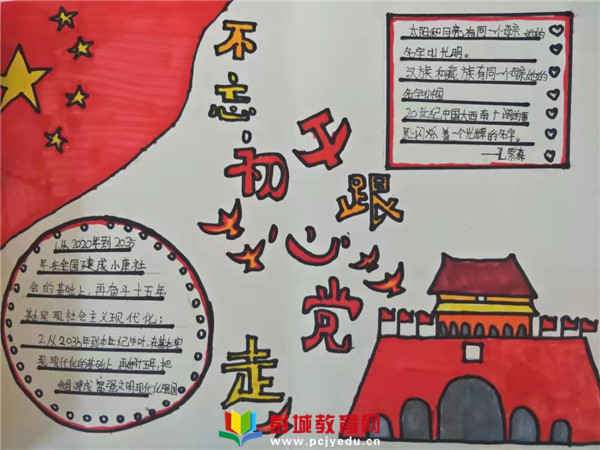 不忘
初心
跟
党
走
太阳和月亮有同一个母亲,她的
名字叫光明。
汉族和藏族有同一个母亲,她的
名字叫中国
20世纪中国大西南广阔的
闪烁着一个光辉的名字。
——孔繁森
1.从2020年到2035
年,在全国建成小康社
会的基础上,再奋斗十五年,
基本实现社会主义现代化;
2.从2035年到本世纪中叶,在基本实
现现代化的基础上再奋斗十五年,把
我国建成富强文明现代化强国
教育网
www.pcjyedu.cn